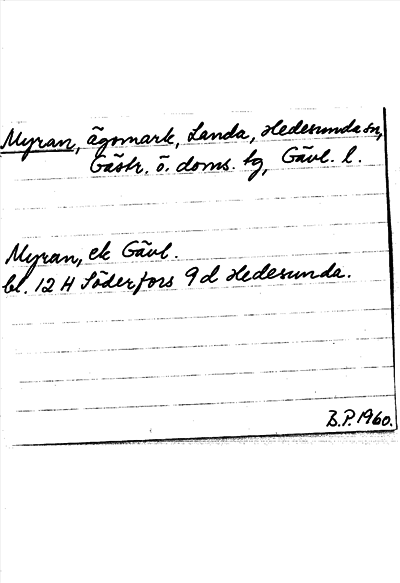 Myran, ägomark, Landa, Hedesunda sn,
Gästr. ö. doms. tg, Gävl. l.
Myran, ek Gävl.
bl. 12 H Söderfors 9 d Hedesunda.
B.P. 1960.